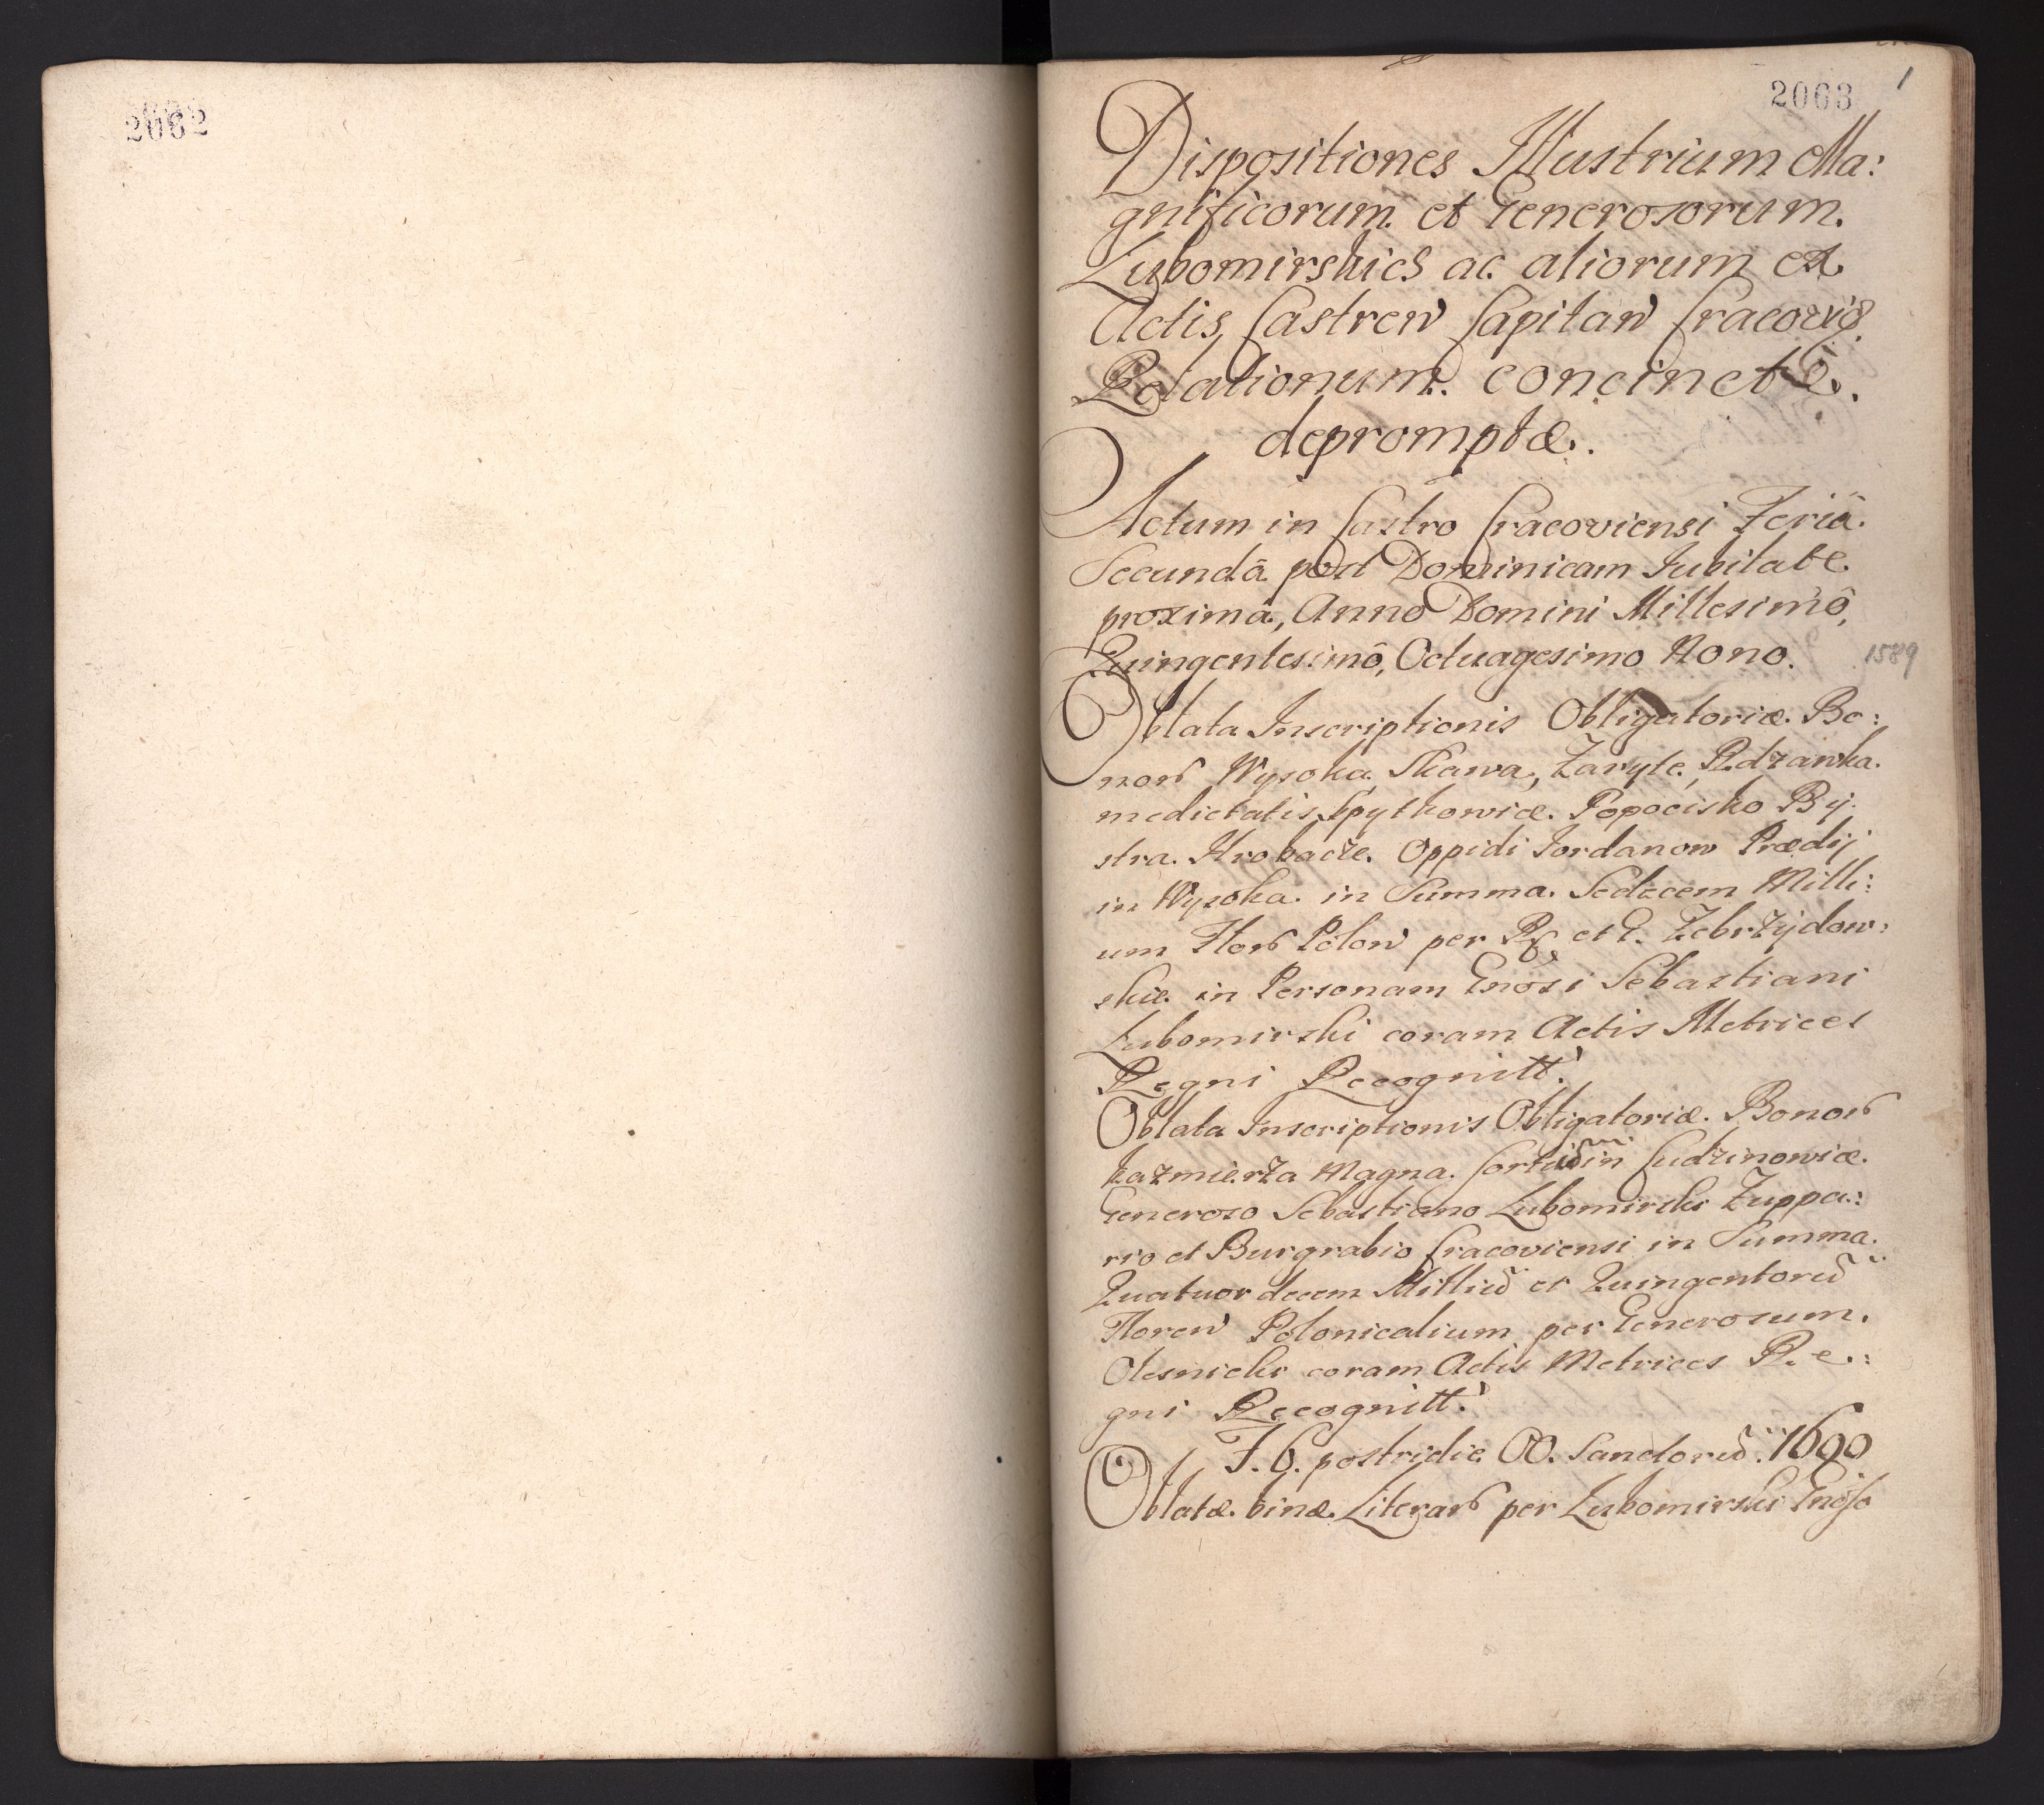 2062
2063
1
Dispositiones Illustrium Ma:
gnificorum et Generosorum.
Lubomirskich ac aliorum ex
Actis Castren Capitan Cracovię
Relationum concinetè.
depromptæ.
Actum in Castro Cracoviensi Feriâ.
Secundâ post Dominicam Jubilate.
proximâ, Anno Domini Millesimô,
Quingentesimô, Octuagesimo Nono.
1589
Oblata Inscriptionis Obligatoriæ. Bo:
nor Wysoka, Skawa, Zaryte, Rdzawka.
medietatis Spytkowicæ. Popocisko By:
stra. Hrobacze. Oppidi Jordanow Prædij
in Wysoka. in Summa. Sedecem Milli:
um Flor Polon per et G. Zebrzÿdow:
skie. in Personam Gnosi Sebastiani
Lubomirski coram Actis Metrices
Regni Recognitt.
Oblata Inscriptionis Obligatoriæ. Bonor
Kazmierza Magna. in Cudzinowicæ.
Generoso Sebastiano Lubomirski Zuppa:
rio et Burgrabio Cracoviensi in Summa.
Quatuor decem Milliū et Quingentorū
Floren Polonicalium per Generosum.
Olesnicki coram Actis Metrices Re:
gni Recognitt.
F. 6. postridie OO. Sanctorū. 1690
Oblatæ. binæ. Literar per Lubomirski Gnoso